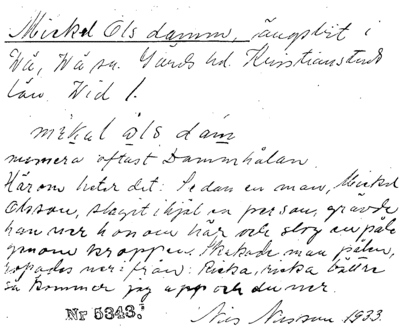 Mickel Ols damm, ängsbit i
Vä, Vä sn. Gärds hd. Kristianstads
län. Vid 1.
mikal åls dam
numera oftast Dammhålan.
Härom heter det: Sedan en man, Mickel
Olsson, slagit ihjäl en person, grävde
han ner honom här och slog en påle
genom kroppen. Skakade man pålen,
ropades ner ifrån: Ricka, ricka bättre
så kommer jag upp och du ner.
Nr 5343. Nils Nilsson 1933.